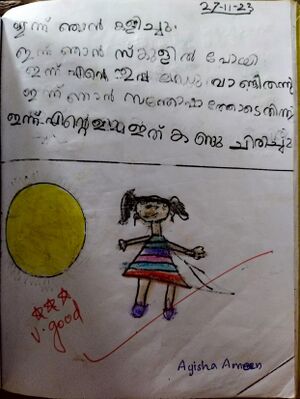 27-11-23
ഇന്ന് ഞാൻ കളിച്ചു.
ഇന്ന് ഞാൻ സ്കൂളിൽ പോയി
ഇന്ന് എന്റെ ഉപ്പ വാങ്ങിതന്നു
ഇന്ന് ഞാൻ സന്തോഷത്തോടെ നിന്നു
ഇന്ന് എന്റെ ഉമ്മ ഇത് കണ്ടു ചിരിച്ചു
v.good
Ayisha Ameen